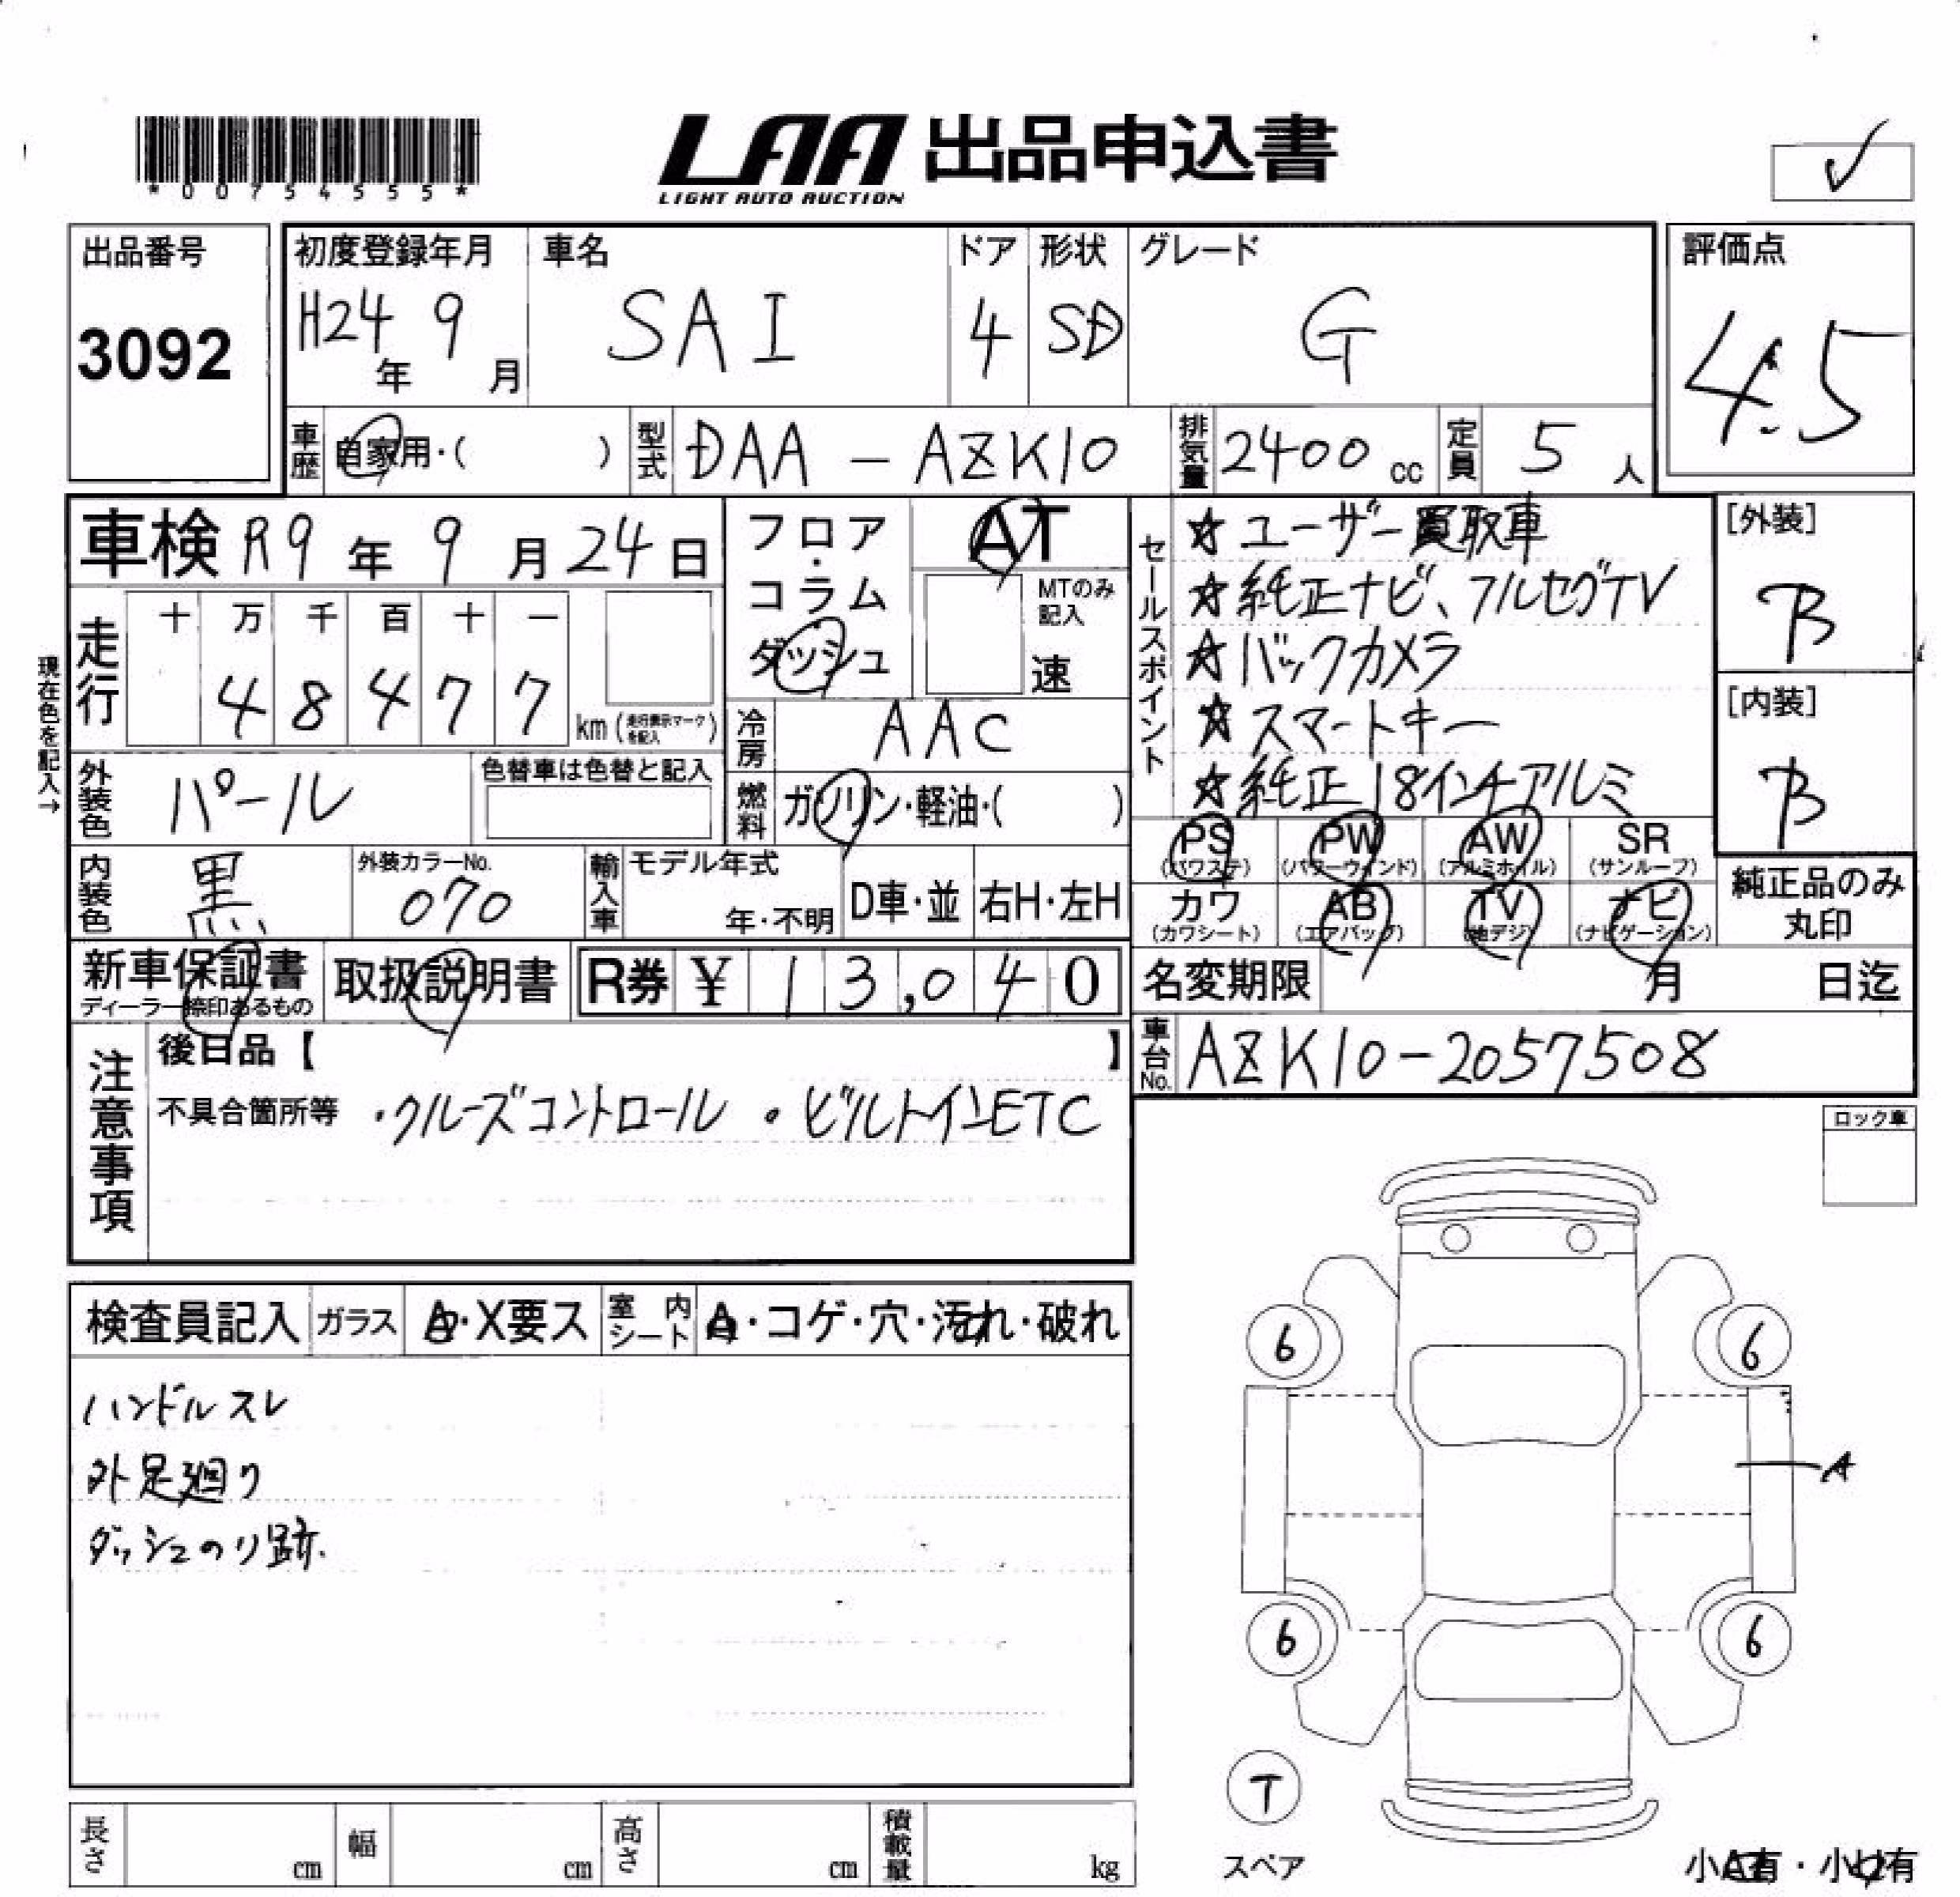 *00754555*
LAA 出品申込書
LIGHT AUTO AUCTION
出品番号
3092
初度登録年月
H24年 9月
車名
SAI
ドア
4
形状
SD
グレード
G
評価点
4.5
車歴 自家用・( )
型式 DAA-AZK10
排気量 2400cc
定員 5人
車検 R9年 9月 24日
現在色を記入→
走行
十 万 千 百 十 一
4 8 4 7 7
km (走行表示マークを記入)
フロア・コラム
ダッシュ
AT
MTのみ記入
速
冷房 AAC
燃料 ガソリン・軽油・( )
セールスポイント
☆ユーザー買取車
☆純正ナビ、フルセグTV
☆バックカメラ
☆スマートキー
☆純正18インチアルミ
[外装]
B
[内装]
B
外装色 パール
色替車は色替と記入
内装色 黒
外装カラーNo.
070
輸入車 モデル年式
年・不明
D車・並
右H・左H
PS (パワステ)
PW (パワーウィンド)
AW (アルミホイル)
SR (サンルーフ)
カワ (カワシート)
AB (エアバッグ)
TV (地デジ)
ナビ (ナビゲーション)
純正品のみ
丸印
新車保証書
ディーラー捺印あるもの
取扱説明書
R券 ¥13,040
名変期限 月 日迄
車台No. AZK10-2057508
注意事項
後日品【 】
不具合箇所等 ・クルーズコントロール ・ビルトインETC
ロック車
検査員記入 ガラス A・X要ス 室内シート A・コゲ・穴・汚れ・破れ
ハンドルスレ
外足廻り
ダッシュのり跡.
6
6
A
6
6
T
スペア
長さ cm 幅 cm 高さ cm 積載量 kg
小A有・小U有